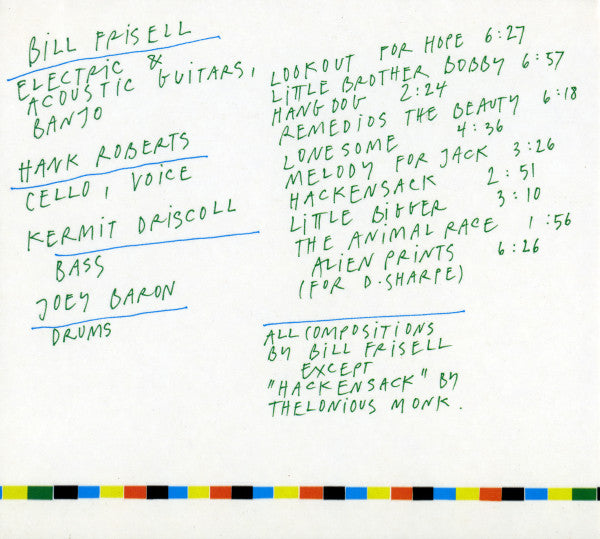 BILL FRISELL
ELECTRIC &
ACOUSTIC GUITARS,
BANJO
HANK ROBERTS
CELLO, VOICE
KERMIT DRISCOLL
BASS
JOEY BARON
DRUMS
LOOKOUT FOR HOPE 6:27
LITTLE BROTHER BOBBY 6:57
HANGDOG 2:24
REMEDIOS THE BEAUTY 6:18
LONESOME 4:36
MELODY FOR JACK 3:26
HACKENSACK 2:51
LITTLE BIGGER 3:10
THE ANIMAL RACE 1:56
ALIEN PRINTS 6:26
(FOR D. SHARPE)
ALL COMPOSITIONS
BY BILL FRISELL
EXCEPT
"HACKENSACK" BY
THELONIOUS MONK.